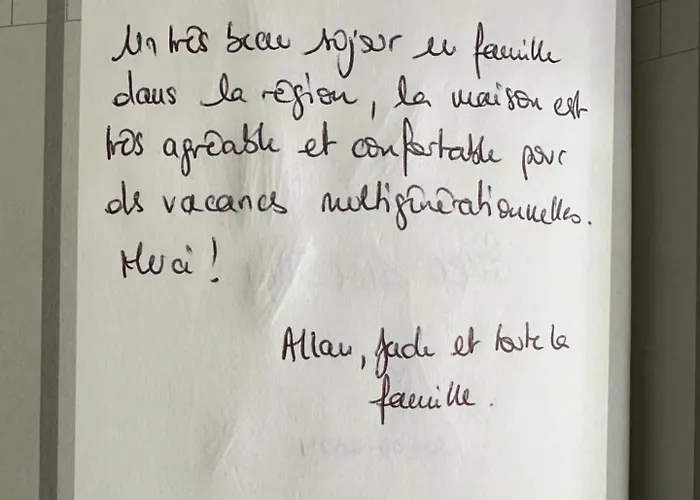 Un très beau séjour en famille
dans la région, la maison est
très agréable et confortable pour
des vacances multigénérationnelles.
Merci !
Allan, Jade et toute la
famille.